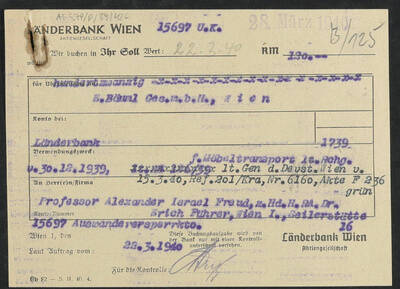 LÄNDERBANK WIEN
AKTIENGESELLSCHAFT
15697 U.K.
28. März 1940
B/125
Wir buchen in Ihr Soll Wert: 22.2.40 RM 120.--
hundertzwanzig
E.Bäuml Ges.m.b.H., Wien
Konto bei:
Länderbank 1739
Verwendungszweck: f.Möbeltransport lt.Rchg.
v.30.12.1939, lt.Gen d.Devst.Wien v.
An Herren/Firma 15.3.40, Ref.201/Kra, Nr.6160, Akte F 236
grün
Professor Alexander Israel Freud, z.Hd.H.RA.Dr.
Erich Führer, Wien I., Seilerstätte
15697 Auswanderersperrkto. 16
Wien 1, den 28.3.1940
Diese Buchungsaufgabe wird von
der Bank nur mit einer Kontroll-
unterschrift versehen.
Länderbank Wien
Aktiengesellschaft
Laut Auftrag vom:
Für die Kontrolle: